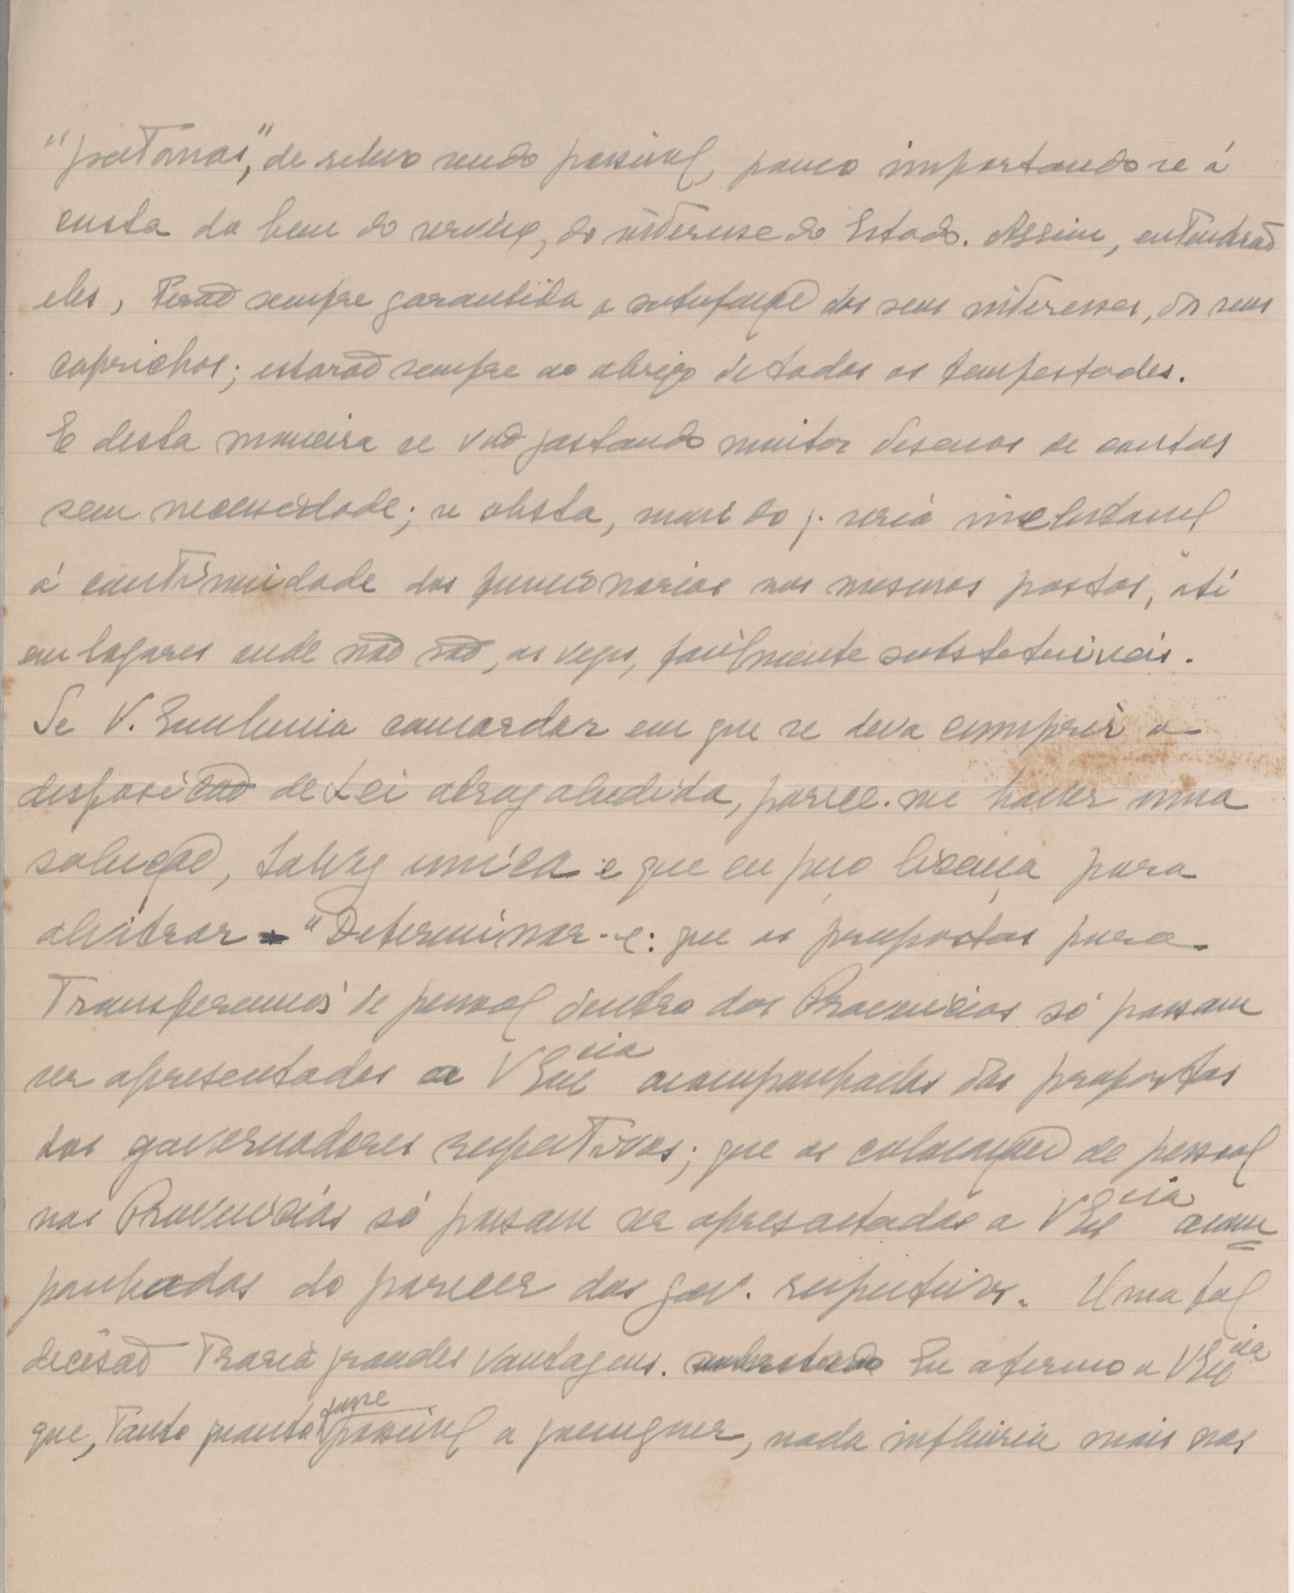 de relevo sendo possivel, pouco importando se á
custa do bem do serviço, do interesse do Estado. Assim, entenderão
eles, terão sempre garantida a satisfação dos seus interesses, dos seus
caprichos; estarão sempre ao abrigo de todas as tempestades.
E desta maneira se vão gastando muitos de contos
sem necessidade; se obsta, mais do q. seria
á continuidade dos funcionarios nos mesmos postos, até
em logares onde não são, as vezes, facilmente substituiveis.
Se V. Excelencia concordar em que se deva cumprir a
disposicão de Lei aludida, parece-me haver uma
solução, talvez unica e que eu peço licença para
alvitrar "Determinar-se: que as propostas para
transferencias de pessoal dentro das Provincias só possam
ser apresentadas a V Exc cia acompanhadas das propostas
dos governadores respectivos; que as colocações de pessoal
nas Provincias só possam ser apresentadas a V Exc cia acom
panhadas do parecer dos gov. respectivos. Uma tal
decisão traria grandes vantagens. Eu afirmo a V Exc cia
que, tanto quanto possivel a nada influiria mais nas